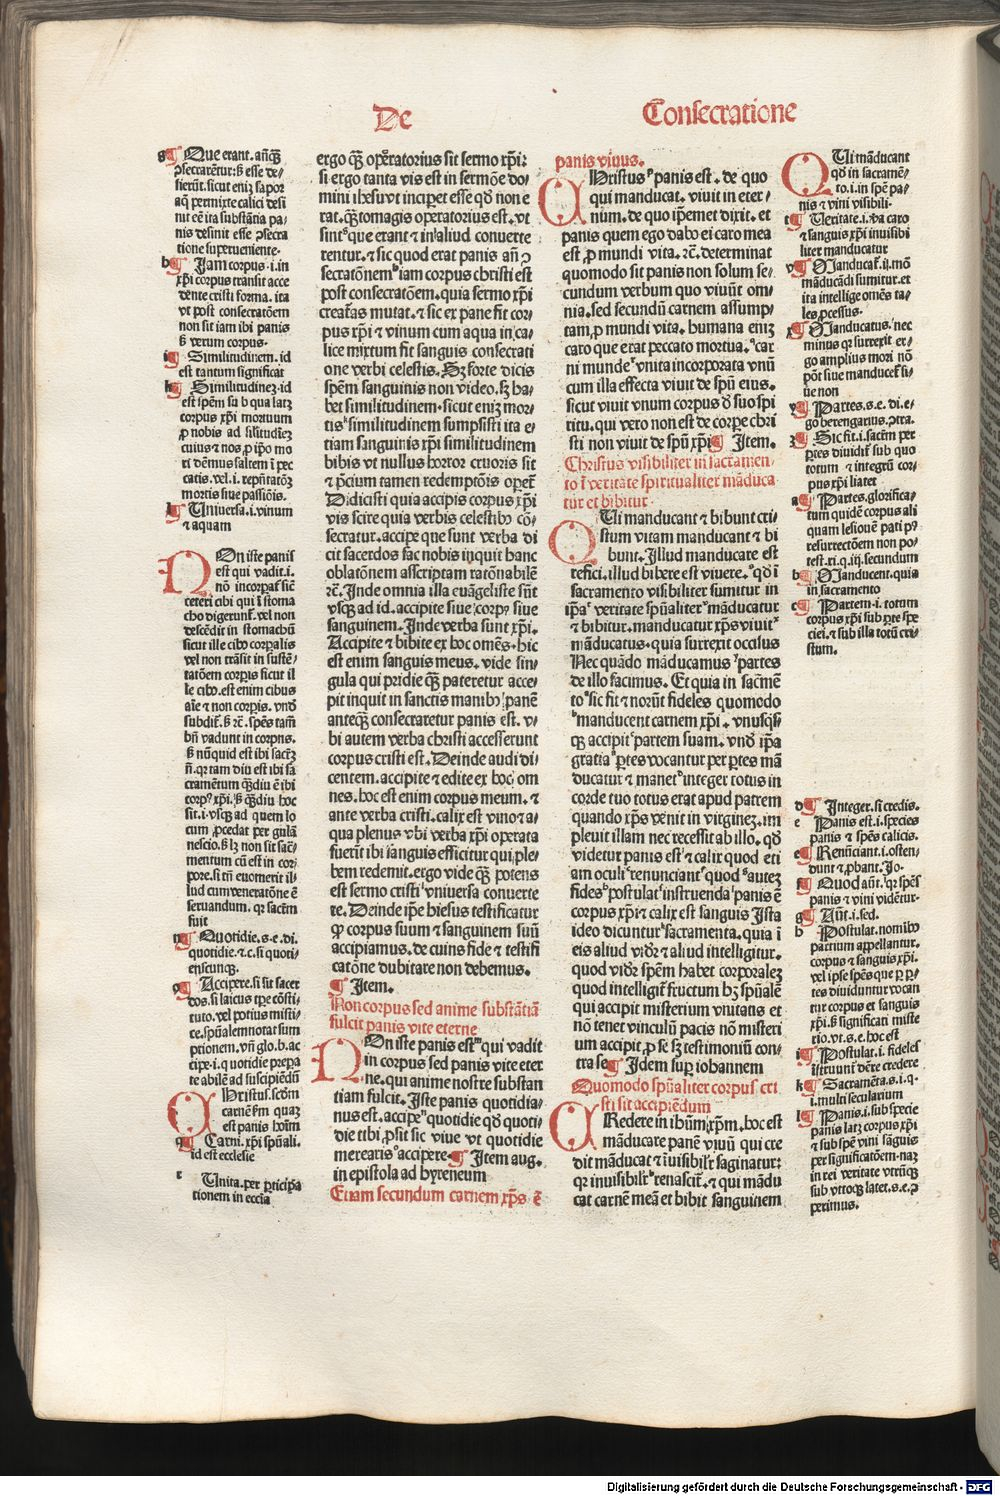 De
Consecratione
g¶ Que erant. añq̃ꝫ
ↄsecrarētur: ß esse de/
sierūt. sicut eniꝫ sapor
aq̃ permixte calici desi
nit eē ita substātia pa/
nis desinit esse ↄsecra
tione superueniente.
h¶ Jam corpus. i. in
xp̄i corpus transit acce
dente cristi forma. ita
vt post consecratōem
non sit iam ibi panis
ß verum corpus.
i¶ Similitudinem. id
est tantum significat
k¶ Similitudineꝫ. id
est spēm su b qua latꝫ
corpus xp̄i mortuum
ꝓ nobis ad silitudīeꝫ
cuius ⁊ nos ꝓ ip̄o mo
ri dēmus saltem ī pec
catis. vel. i. rep̄ntatōꝫ
mortis siue passiōis.
l¶ Uniuersa. i. vinum
⁊ aquam
NOn iste panis
est qui vadit. i.
nō incorpat̄ sic̄
ceteri cibi qui ī stoma
cho digerunt̄. vel non
descēdit in stomachū
sicut ille cibꝰ corꝑalis
vel non trāsit in susten/
tatōem corꝑis sicut il
le cibꝰ. est enim cibus
aīe ⁊ non corꝑis. vnō
subdit̄. ß rc̄. spēs tam̄
bn̄ vadunt in corpus.
ß nūquid est ibi sacr̄ꝫ
n̄. qr tam diu est ibi sa
cramētum q̄ꝫdiu ē ibi
corpꝰ xp̄i. ß q̄ꝫdiu hoc
sit. i. vsqꝫ ad quem lo
cum ꝓcedat per gulā
nescio. ß lꝫ non sit sac̄/
mentum cū est in cor
pore. si tn̄ euomerit il/
lud cum veneratōne ē
seruandum. qr sacr̄m
fuit
n¶ Quotidie. s. e. di.
quotidie. ⁊ c. si quoti/
enscunqꝫ.
o¶ Accipere. si sit sacer
dos. si laicus tp̄e cōsti/
tuto. vel potius misti/
ce. spūalem notat sum
ptionem. vn̄ glo. b. ac
cipe. i. quotidie prepa
te abilē ad suscipiēdū
CHristus. scd̄m
carnē ßm quaꝫ
est panis hoīm
q¶ Carni. xp̄i spūali.
id est ecclesie
r Unita. per ꝑticipa
tionem in eccīa
ergo q̃ꝫ oꝑatorius sit sermo xp̄i:
si ergo tanta vis est in sermōe do/
mini ihesu vt inciꝑet esse qd̄ non e
rat. q̃ꝫtomagis operatorius est. vt
sint g que erant ⁊ in aliud conuerte
rentur. ⁊ sic quod erat panis an̄ ↄ
secratōnem h iam corpus christi est
post consecratōem. quia sermo xp̄i
creat̄as mutat. ⁊ sic ex pane fit cor/
pus xp̄i ⁊ vinum cum aqua in ca/
lice mixtum fit sanguis consecrati
one verbi celestis. Sꝫ forte dicis
spēm sanguinis non video. sꝫ ha/
bet similitudinem. sicut eniꝫ mor/
tis k similitudinem sumpsisti ita e/
tiam sanguinis xp̄i similitudinem
bibis vt nullus horror cruoris sit
⁊ p̄cium tamen redemptōis oꝑet̄
Didicisti quia accipis corpus xp̄i
vis scire quia verbis celestibꝰ cō/
secratur. accipe que sunt verba di
cit sacerdos fac nobis inquit hanc
oblatōnem asscriptam ratōnabilē
rc̄. Inde omnia illa euāgeliste sūt
vsqꝫ ad id. accipite siue corpꝰ siue
sanguinem. Inde verba sunt xp̄i.
Accipite ⁊ bibite ex hoc omēs. hic
est enim sanguis meus. vide sin/
gula qui pridie q̃ꝫ pateretur acce/
pit inquit in sanctis manibꝰ panē
anteq̃ꝫ consecraretur panis est. v/
bi autem verba christi accesserunt
corpus cristi est. Deinde audi di/
centem. accipite ⁊ edite ex hoc om
nes. hoc est enim corpus meum. ⁊
ante verba cristi. calix est vino ⁊ a/
qua plenus vbi verba xp̄i operata
fuerīt ibi sanguis efficitur qui ple/
bem redemit. ergo vide q̃ꝫ potens
est sermo cristi l vniuersa conuerte
re. Deinde ip̄e hiesus testificatur
ꝙ corpus suum ⁊ sanguinem suū
accipiamus. de cuius fide ⁊ testifi
catōne dubitare non debemus.
¶ Item.
Non corpus sed anime substātiā
fulcit panis vite eterne
NOn iste panis est m qui vadit
in corpus sed panis vite eter
ne. qui anime nostre substan
tiam fulcit. Iste panis quotidia/
nus est. accipe n quotidie qd̄ quoti/
die tibi ꝓsit sic viue vt quotidie
merearis o accipere. ¶ Item aug.
in epistola ad hyreneum
Etiam secundum carnem xp̄s ē
panis viuus.
CHristus p panis est. de quo
qui manducat. viuit in eter/
num. de quo ip̄emet dixit. et
panis quem ego dabo ei caro mea
est ꝓ mundi vita. rc̄. determinat
quomodo sit panis non solum se/
cundum verbum quo viuūt om/
nia. sed secundū carnem assump/
tam ꝓ mundi vita. humana eniꝫ
caro que erat peccato mortua. q car
ni munde r vnita incorporata vnū
cum illa effecta viuit de spū eius.
sicut viuit vnum corpus ō suo spi
ritu. qui vero non est de corꝑe chri
sti non viuit de spū xp̄i ¶ Item.
Christus visibiliter in sacramen/
to ī veritate spiritualiter māduca
tur et bibitur.
QUi manducant ⁊ bibunt cri/
stum vitam manducant ⁊ bi
bunt. Illud manducare est
refici. illud bibere est viuere. s qd̄ ī
sacramento visibiliter sumitur in
ip̄a t veritate spūaliter v māducatur
⁊ bibitur. manducatur xp̄s viuit x
māducatus. quia surrexit occisus
Nec quādo māducamus y partes
de illo facimus. Et quia in sacr̄mē
to z sic fit ⁊ norūt fideles quomodo
b manducent carnem xp̄i. vnusqꝫs
qꝫ accipit c partem suam. vnō ip̄a
gratia d ꝑtes vocantur per ꝑtes mā
ducatur ⁊ manet d integer totus in
corde tuo totus erat apud patrem
quando xp̄s venit in virgineꝫ. im
pleuit illam nec recessit ab illo. qd̄
videtur panis est e ⁊ calix quod eti
am oculi f renunciant g quod h auteꝫ
fides h postulat i instruenda l panis ē
corpus xp̄i ⁊ calix est sanguis Ista
ideo dicuntur k sacramenta. quia ī
eis aliud vidr̄ ⁊ aliud intelligitur.
quod vidr̄ spēm habet corporaleꝫ
quod intelligit̄ fructum hꝫ spūalē
qui accipit misterium vnitatis et
nō tenet vinculū pacis nō misteri
um accipit ꝓ se sꝫ testimoniū con/
tra se ¶ Idem suꝑ iohannem
Quomodo spūaliter corpus cri
sti sit accipiēdum
CRedere in ihūm xp̄m. hoc est
māducate panē viuū qui cre
dit māducat ⁊ īuisibilr̄ saginatur:
qr inuisibilr̄ renascit̄. ⁊ qui mādu
cat carnē meā et bibit sanguinem
QUi māducant
qd̄ in sacramē/
to. i. in spē pa/
nis ⁊ vini visibili.
t¶ Ueritate. i. ꝟa caro
⁊ sanguis xp̄i inuisibi
liter manducatur
v¶ Manducat̄. ij. mō
māducādi sumitur. et
ita intellige omēs ta/
les ꝓcessus.
x¶ Manducatus. nec
minus qr surrexit er/
go amplius mori nō
pōt siue manducet̄ si/
ue non
y¶ Partes. s. e. di. e/
go berengarius. ↄtra.
z¶ Sic fit. i. sacr̄m per
ꝑtes diuidit̄ sub quo
totum ⁊ integrū cor/
pus xp̄i latet
a¶ Partes. glorifica/
tum quidē corpus ali
quam lesionē pati pꝰ
resurrectōem non po/
test. xi. q. iij. secundum
b¶ Manducent. quia
in sacramento
c¶ Partem. i. totum
corpus xp̄i sub ꝑte spe
ciei. ⁊ sub illa totū cri/
stum.
d¶ Integer. si credis.
e Panis est. i. species
panis ⁊ spēs calicis.
e¶ Renūciant. i. osten/
dunt ⁊ ꝓbant. Jo.
f¶ Quod aūt. qr spēs
panis ⁊ vini vidētur.
g¶ Aūt. i. sed.
h Postulat. nomībꝰ
patrium appellantur.
corpus ⁊ sanguis xp̄i.
vel ip̄e spēs que ꝑ ꝑ/
tes diuiduntur vocan
tur corpus et sanguis
xp̄i. ß significati miste
rio. vt. s. e. hoc est
i¶ Postulat. i. fideles
īstruunt̄ dere credere
k¶ Sacramēta. s. i. q.
i. multi secularium
l¶ Panis. i. sub specie
panis latꝫ corpus xp̄i
⁊ sub spē vini sāguis
per significatōem. naꝫ
in rei veritate vtrūqꝫ
sub vtroqꝫ latet. s. e. ↄ
perimus.
Digitalisierung gefördert durch die Deutsche Forschungsgemeinschaft - DFG